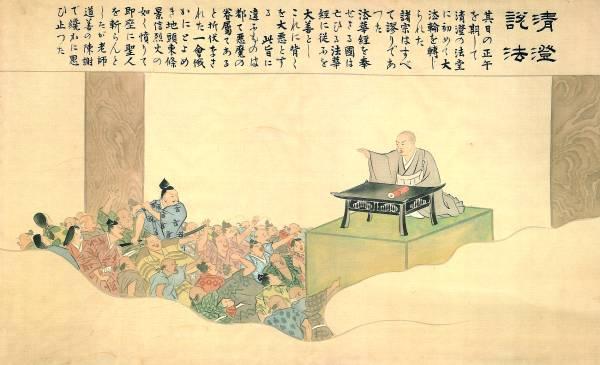 清澄
説法
其日の正午
を期して
清澄の法堂
に初めて大
法輪を轉じ
られた
諸宗はすべ
て謬りであ
つた
法華経を奉
ぜざる國は
亡びる法華
経に従ふを
大善と
これに背く
を大悪とす
る 此旨に
違ふものは
都て悪魔の
眷属である
と折伏さ
れた一會俄
かにとよめ
き地頭東條
景信烈火の
如く憤りて
即座に聖人
を斬らんと
したが老師
道善の陳謝
で纔かに思
ひ止つた